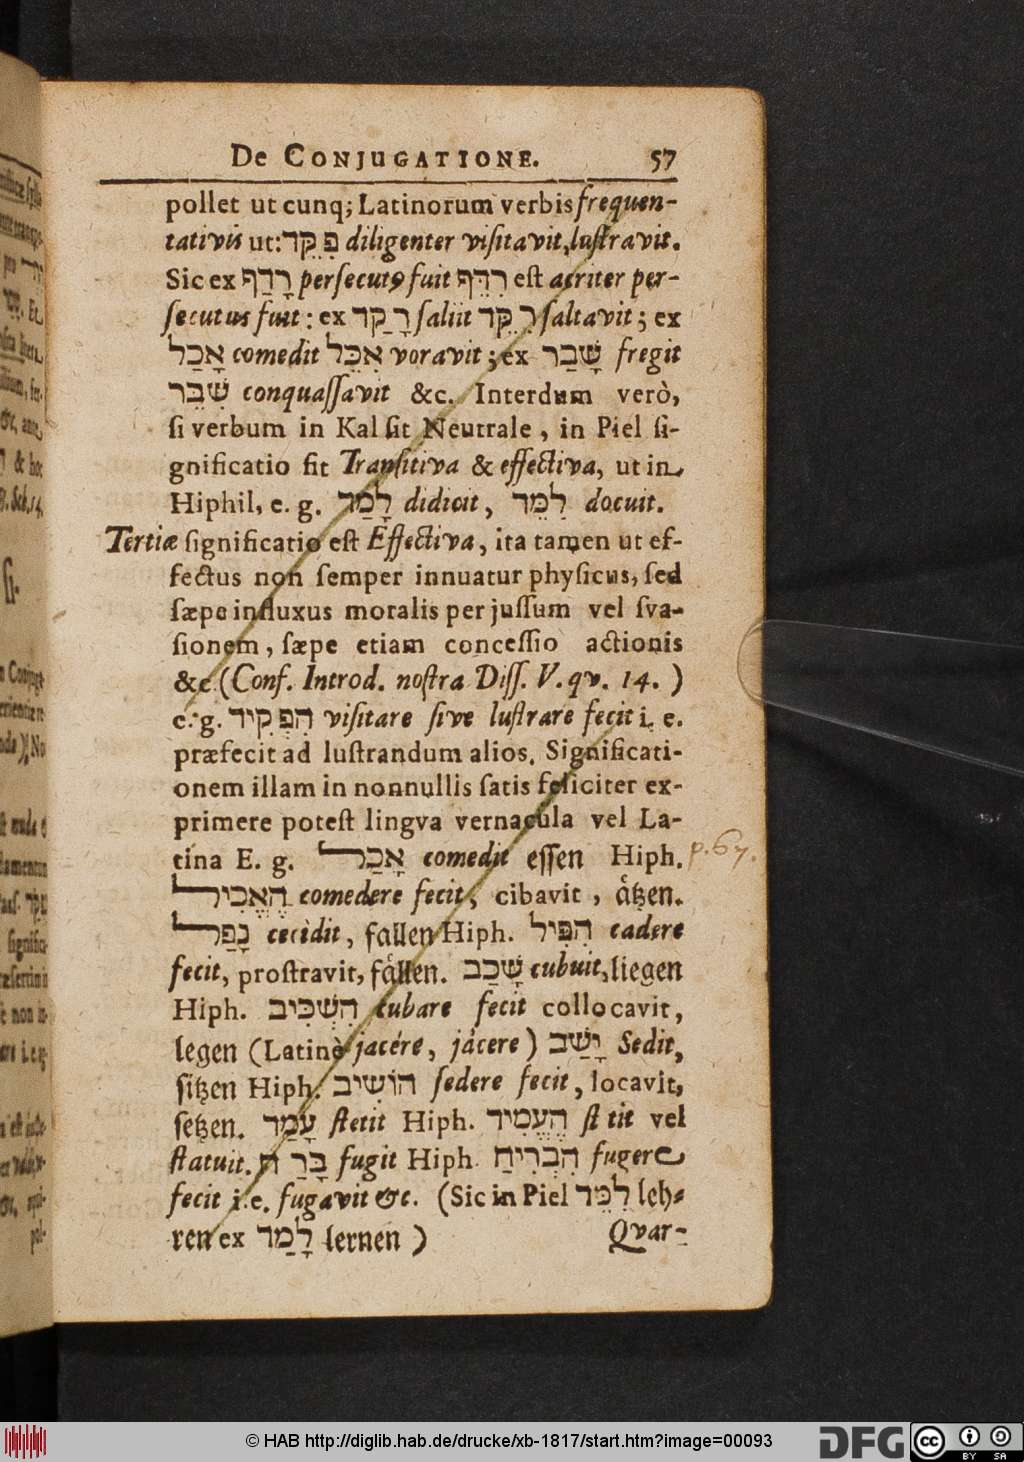 De CONJUGATIONE. 57
pollet ut cunq; Latinorum verbis frequen-
tativis ut: פִּקֵּד diligenter visitavit, lustravit.
Sic ex רָדַף persecutꝰ fuit רִדֵּף est acriter per-
secutus fuit: ex רָקַד saliit רִקֵּד saltavit; ex
אָכַל comedit אִכֵּל voravit; ex שָׁבַר fregit
שִׁבֵּר conquassavit &c. Interdum verò,
si verbum in Kal sit Neutrale, in Piel si-
gnificatio fit Transitiva & effectiva, ut in
Hiphil, e. g. לָמַד didicit, לִמֵּד docuit.
Tertiæ significatio est Effectiva, ita tamen ut ef-
fectus non semper innuatur physicus, sed
sæpe influxus moralis per jussum vel sva-
sionem, sæpe etiam concessio actionis
&c (Conf. Introd. nostra Diss. V. qv. 14.)
e. g. הִפְקִיד visitare sive lustrare fecit i. e.
præfecit ad lustrandum alios. Significati-
onem illam in nonnullis satis feliciter ex-
primere potest lingva vernacula vel La-
tina E. g. אָכַל comedit essen Hiph. p. 67.
הֶאֱכִיל comedere fecit, cibavit, åtzen.
נָפַל cecidit, fallen Hiph. הִפִּיל cadere
fecit, prostravit, fållen. שָׁכַב cubuit, liegen
Hiph. הִשְׁכִּיב cubare fecit collocavit,
legen (Latinè jacére, jácere) יָשַׁב Sedit,
sitzen Hiph. הוֹשִׁיב sedere fecit, locavit,
setzen. עָמַד stetit Hiph. הֶעֱמִיד st tit vel
statuit. בָּרַח fugit Hiph. הִבְרִיחַ fugere
fecit i.e. fugavit &c. (Sic in Piel לִמֵּד leh-
ren ex לָמַד lernen)
Qvar-
© HAB http://diglib.hab.de/drucke/xb-1817/start.htm?image=00093
DFG
cc BY SA